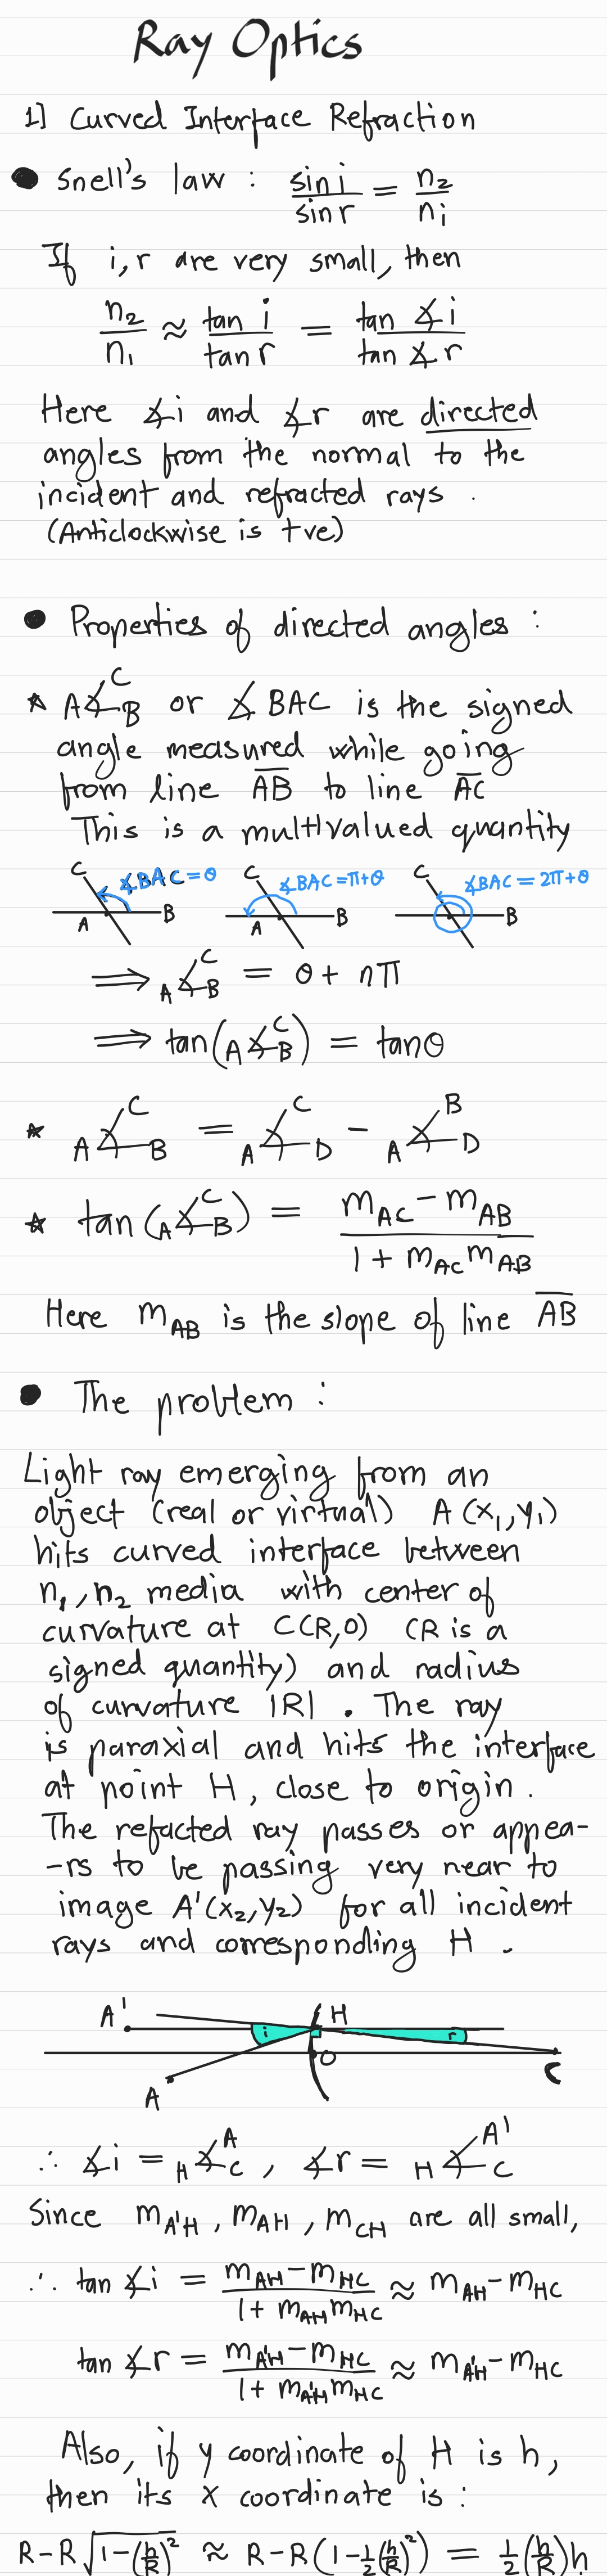 Ray Optics
1] Curved Interface Refraction
● Snell's law : sin i / sin r = n₂ / nᵢ
If i, r are very small, then
n₂ / n₁ ≈ tan i / tan r = tan ∡i / tan ∡r
Here ∡i and ∡r are directed
angles from the normal to the
incident and refracted rays .
(Anticlockwise is +ve)
● Properties of directed angles :
☆ A∡ᶜ_B or ∡BAC is the signed
angle measured while going
from line AB to line AC
This is a multivalued quantity
C A B ∡BAC = θ C A B ∡BAC = π+θ C B ∡BAC = 2π+θ
⟹ A∡ᶜ_B = θ + nπ
⟹ tan(A∡ᶜ_B) = tanθ
☆ A∡ᶜ_B = A∡ᶜ_D − A∡ᴮ_D
☆ tan(A∡ᶜ_B) = (m_AC − m_AB) / (1 + m_AC m_AB)
Here m_AB is the slope of line AB
● The problem :
Light ray emerging from an
object (real or virtual) A(x₁,y₁)
hits curved interface between
n₁,n₂ media with center of
curvature at C(R,0) (R is a
signed quantity) and radius
of curvature |R| . The ray
is paraxial and hits the interface
at point H, close to origin .
The refacted ray passes or appea-
-rs to be passing very near to
image A'(x₂,y₂) for all incident
rays and corresponding H .
A' H
i r
O C
A
∴ ∡i = H∡ᴬ_C , ∡r = H∡ᴬ'_C
Since m_A'H , m_AH , m_CH are all small,
∴ tan ∡i = (m_AH − m_HC) / (1 + m_AH m_HC) ≈ m_AH − m_HC
tan ∡r = (m_A'H − m_HC) / (1 + m_A'H m_HC) ≈ m_A'H − m_HC
Also, if y coordinate of H is h,
then its x coordinate is :
R − R√(1 − (h/R)²) ≈ R − R(1 − ½(h/R)²) = ½(h/R)h